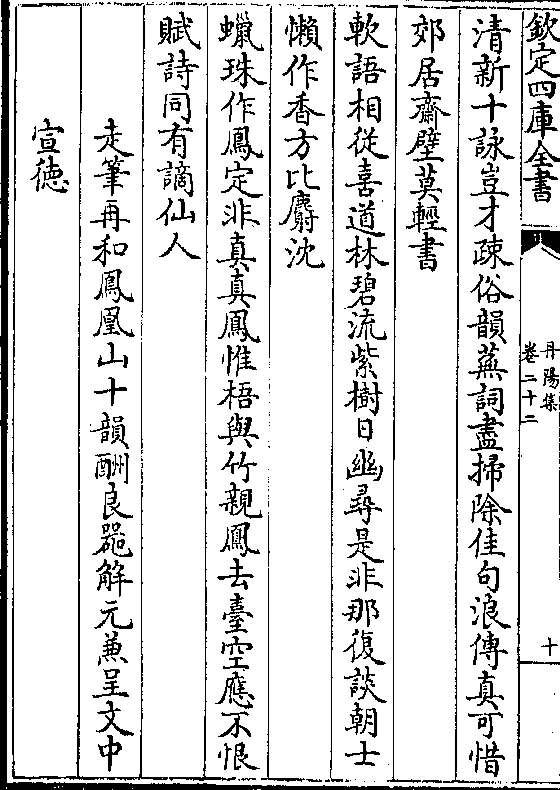 欽定四庫全書
丹陽集
卷二十二
十
清新十詠豈才疎俗韻蕪詞盡掃除佳句浪傳真可惜
郊居齋壁莫輕書
軟語相從喜道林碧流紫樹日幽尋是非那復談朝士
懶作香方比麝沈
蠟珠作鳳定非真真鳳惟梧與竹親鳳去臺空應不恨
賦詩同有謫仙人
走筆再和鳳凰山十韻酬良器解元兼呈文中
宣徳